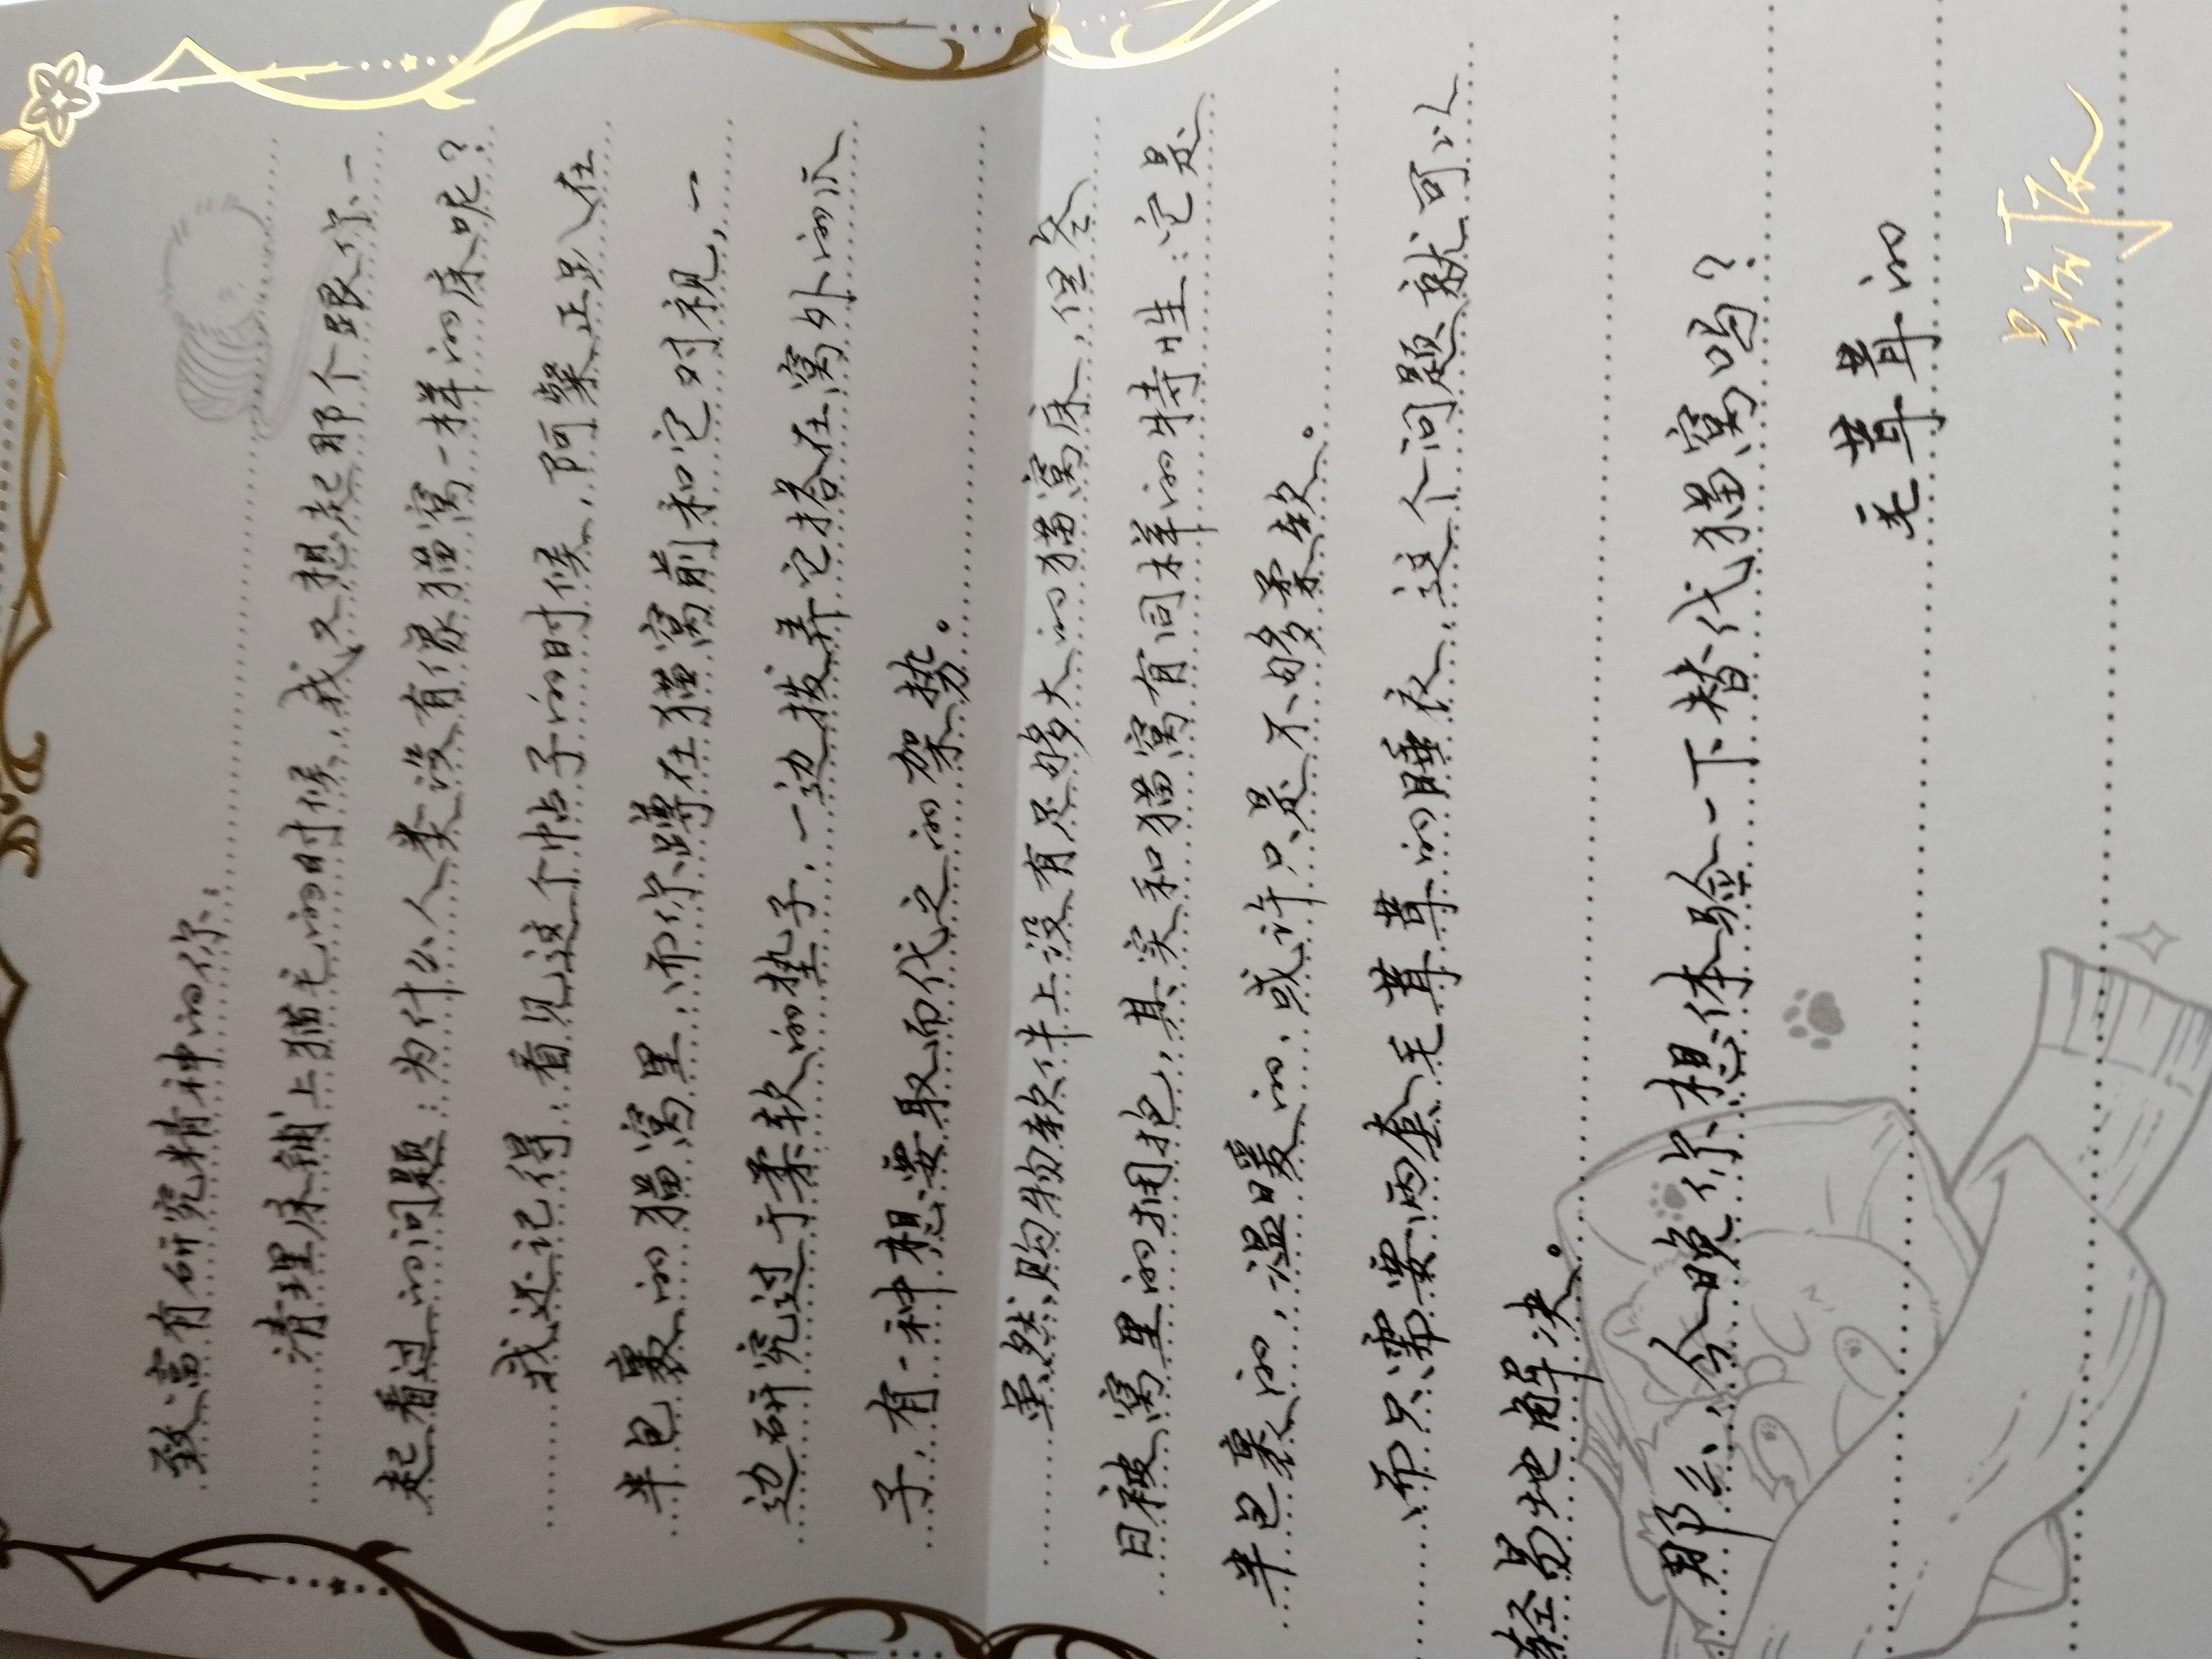 致富有研究精神的你:
清理床铺上猫毛的时候,我又想起那个跟你一
起看过的问题:为什么人类没有像猫窝一样的床呢?
我还记得,看见这个帖子的时候,阿粲正趴在
半包裹的猫窝里,而你蹲在猫窝前和它对视,一
边研究过于柔软的垫子,一边拨弄它搭在窝外的爪
子,有一种想要取而代之的架势。
虽然购物软件上没有足够大的猫窝床,但冬
日被窝里的拥抱,其实和猫窝有同样的特性:它是
半包裹的,温暖的,或许只是不够柔软。
而只需要两套毛茸茸的睡衣,这个问题就可以
轻易地解决。
那么,今晚你想体验一下替代猫窝吗?
毛茸茸的